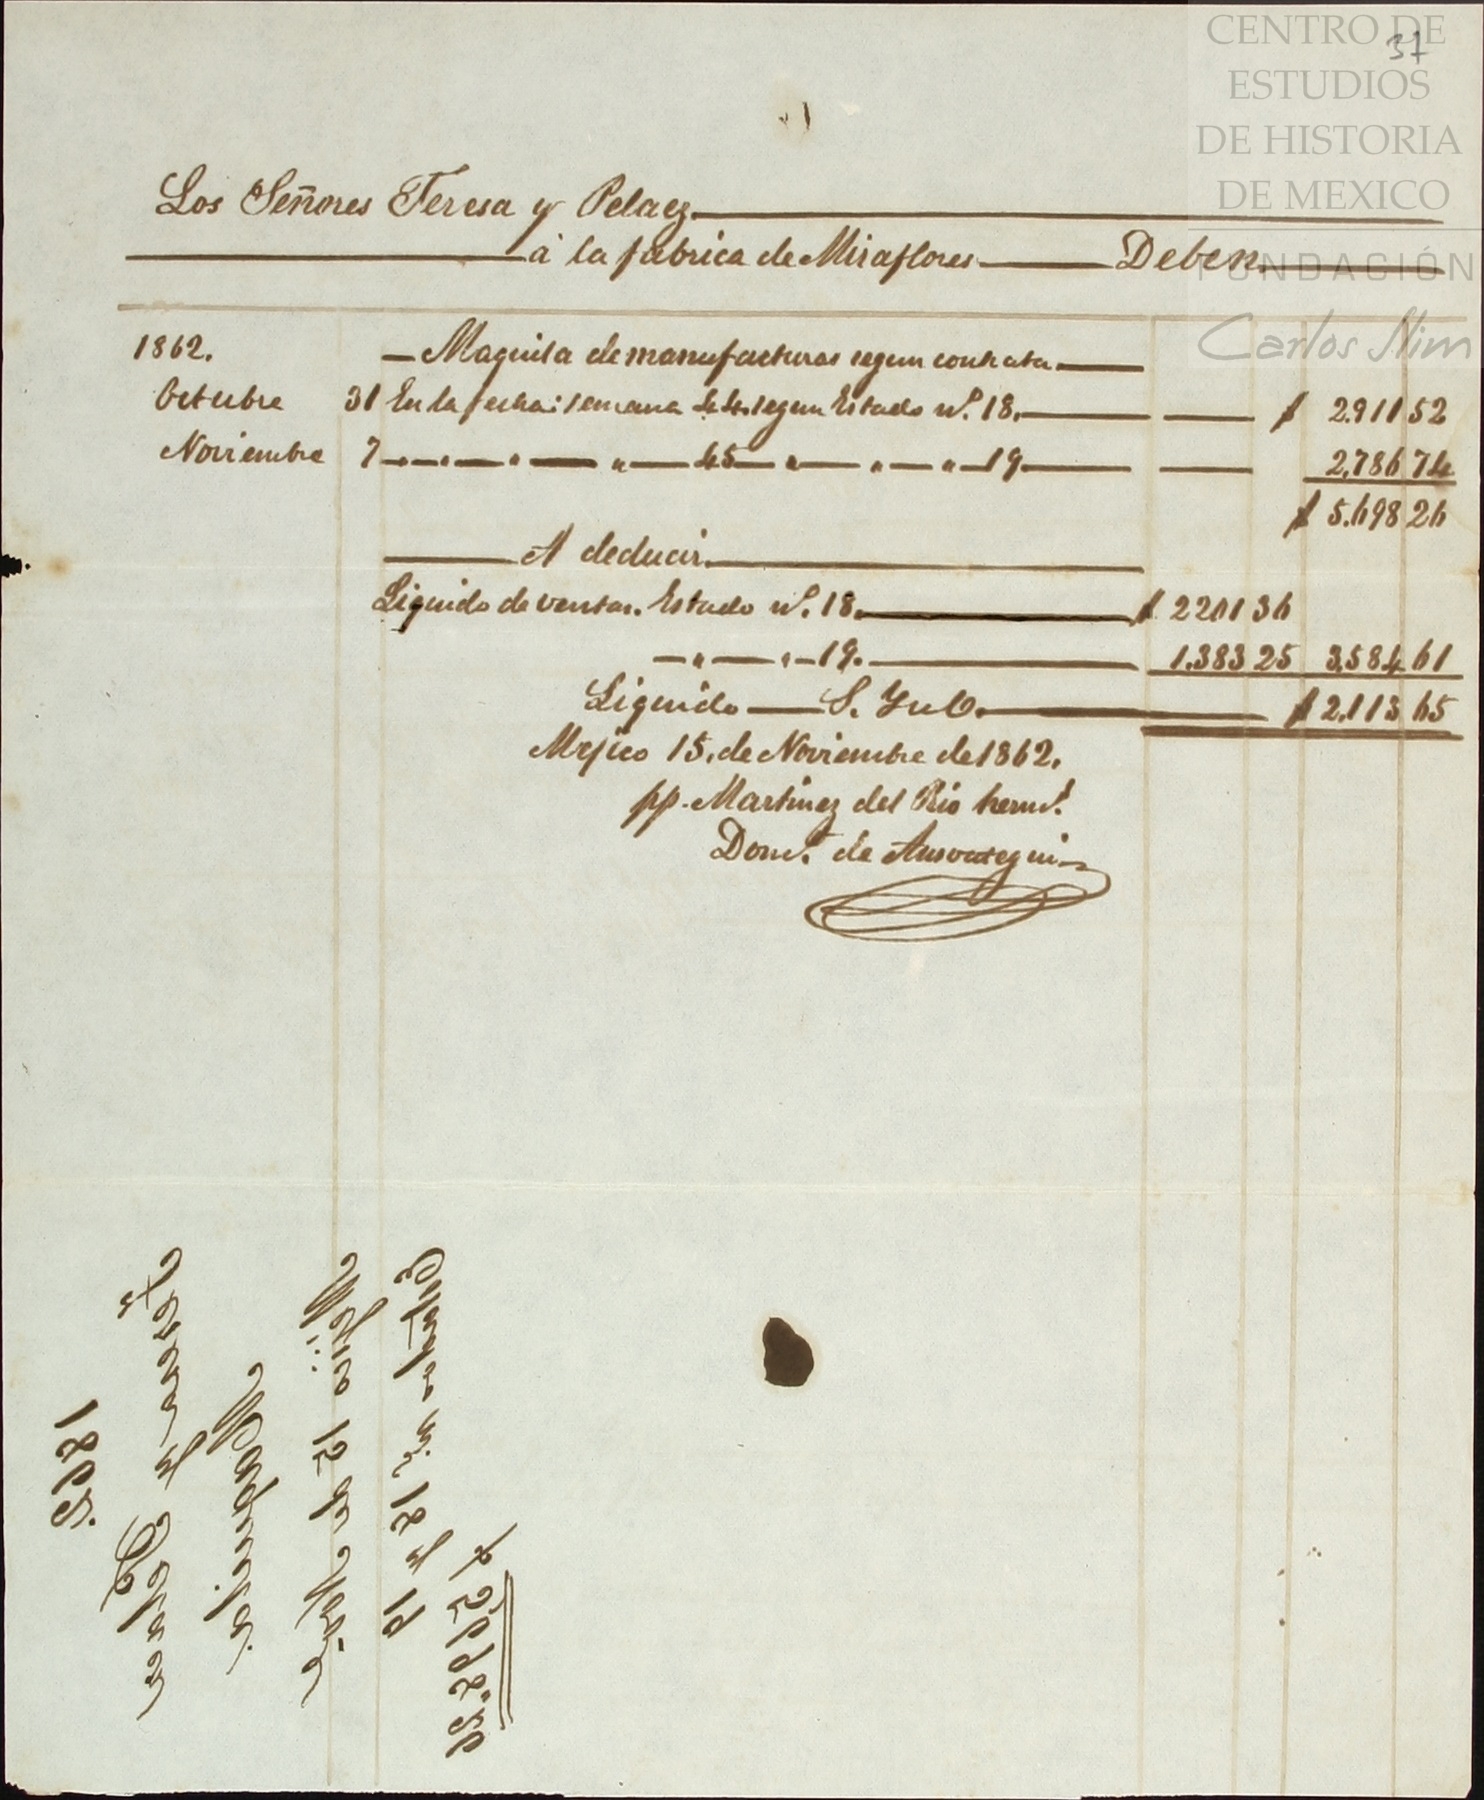 37
CENTRO DE
ESTUDIOS
DE HISTORIA
DE MEXICO
FUNDACIÓN
Carlos Slim
Los Señores Teresa y Pelaez
à la fabrica de Miraflores Deben.
1862. Maquila de manufacturas segun contrata
Octubre 31 En la fecha: semana 44. segun Estado nº. 18. $ 2.911 52
Noviembre 7 " " " 45 " " " 19 2,786 74
$ 5.698 26
A deducir
Liquido de ventas. Estado nº. 18. $ 2201 36
" " 19. 1.383 25 3,584 61
Liquido S. Yu O. $ 2,113 65
Mejico 15, de Noviembre de 1862.
pp. Martinez del Rio hermˢ.
Domº. de Ansoategui
1862
Teresa y Pelaez